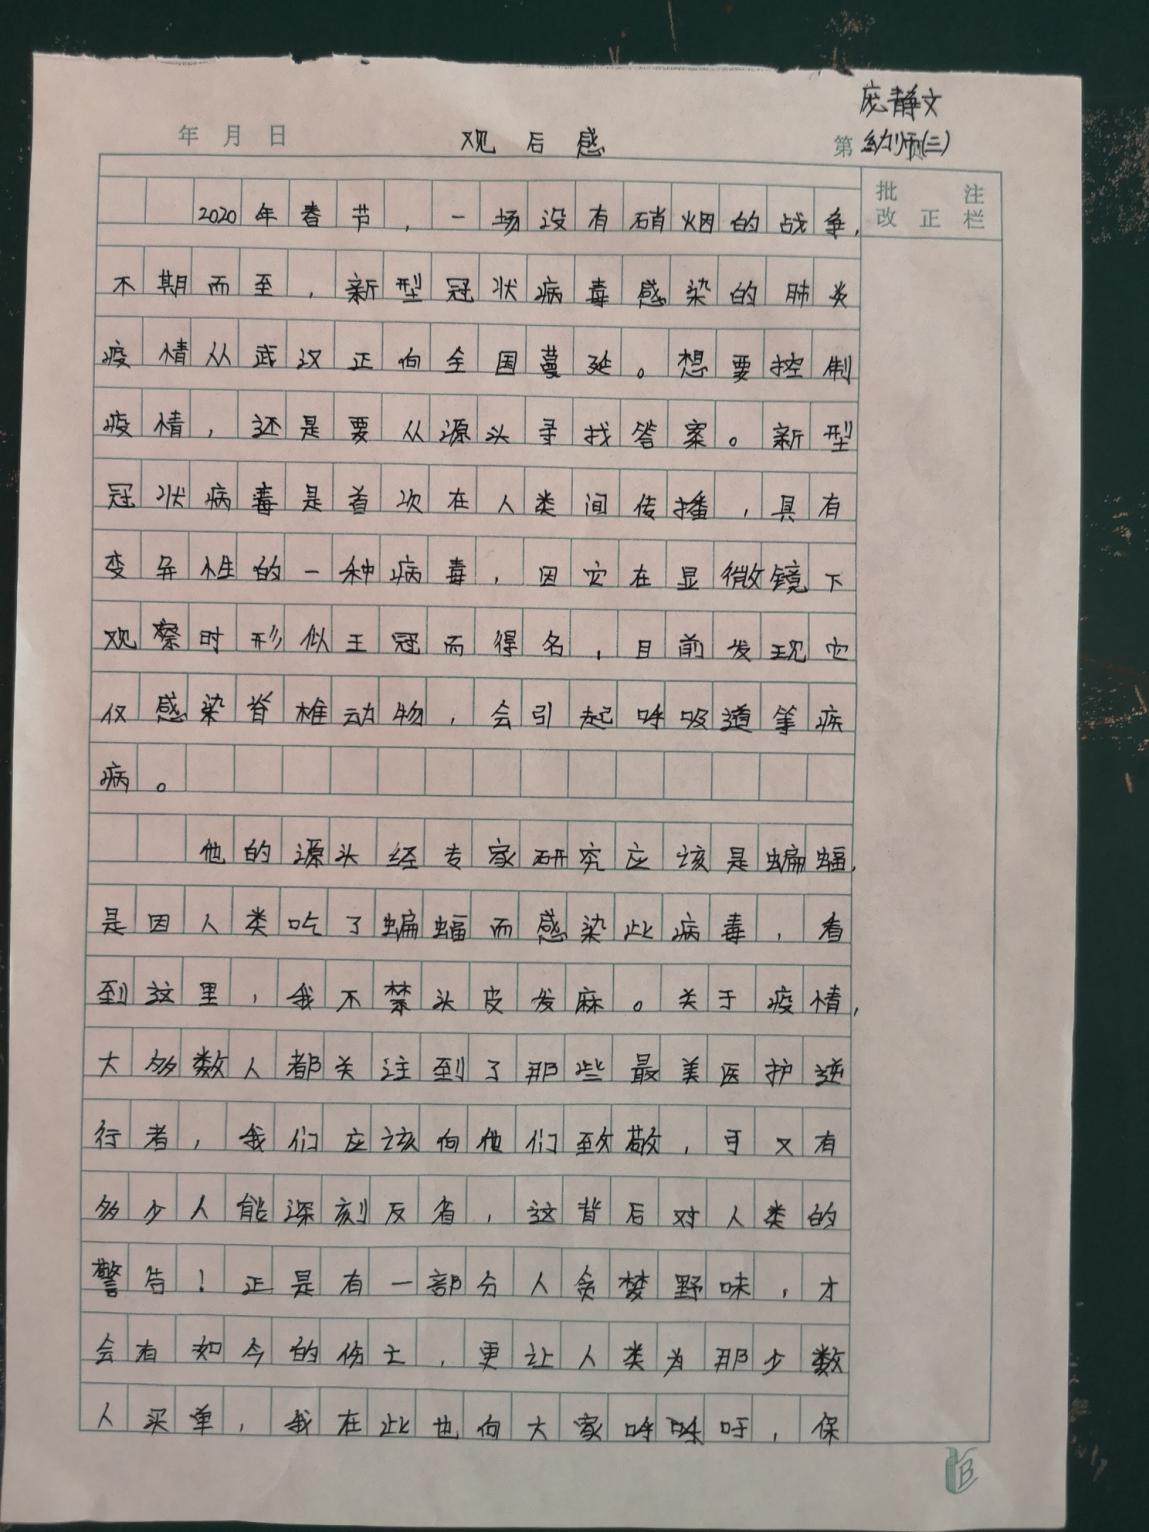 庞静文
年 月 日 观后感 第 幼师(三)
批 注
改 正 栏
2020年春节，一场没有硝烟的战争，
不期而至，新型冠状病毒感染的肺炎
疫情从武汉正向全国蔓延。想要控制
疫情，还是要从源头寻找答案。新型
冠状病毒是首次在人类间传播，具有
变异性的一种病毒，因它在显微镜下
观察时形似王冠而得名，目前发现它
仅感染脊椎动物，会引起呼吸道等疾
病。
他的源头经专家研究应该是蝙蝠，
是因人类吃了蝙蝠而感染此病毒，看
到这里，我不禁头皮发麻。关于疫情，
大多数人都关注到了那些最美医护逆
行者，我们应该向他们致敬，可又有
多少人能深刻反省，这背后对人类的
警告！正是有一部分人贪婪野味，才
会有如今的伤亡，更让人类为那少数
人买单，我在此也向大家呼吁，保